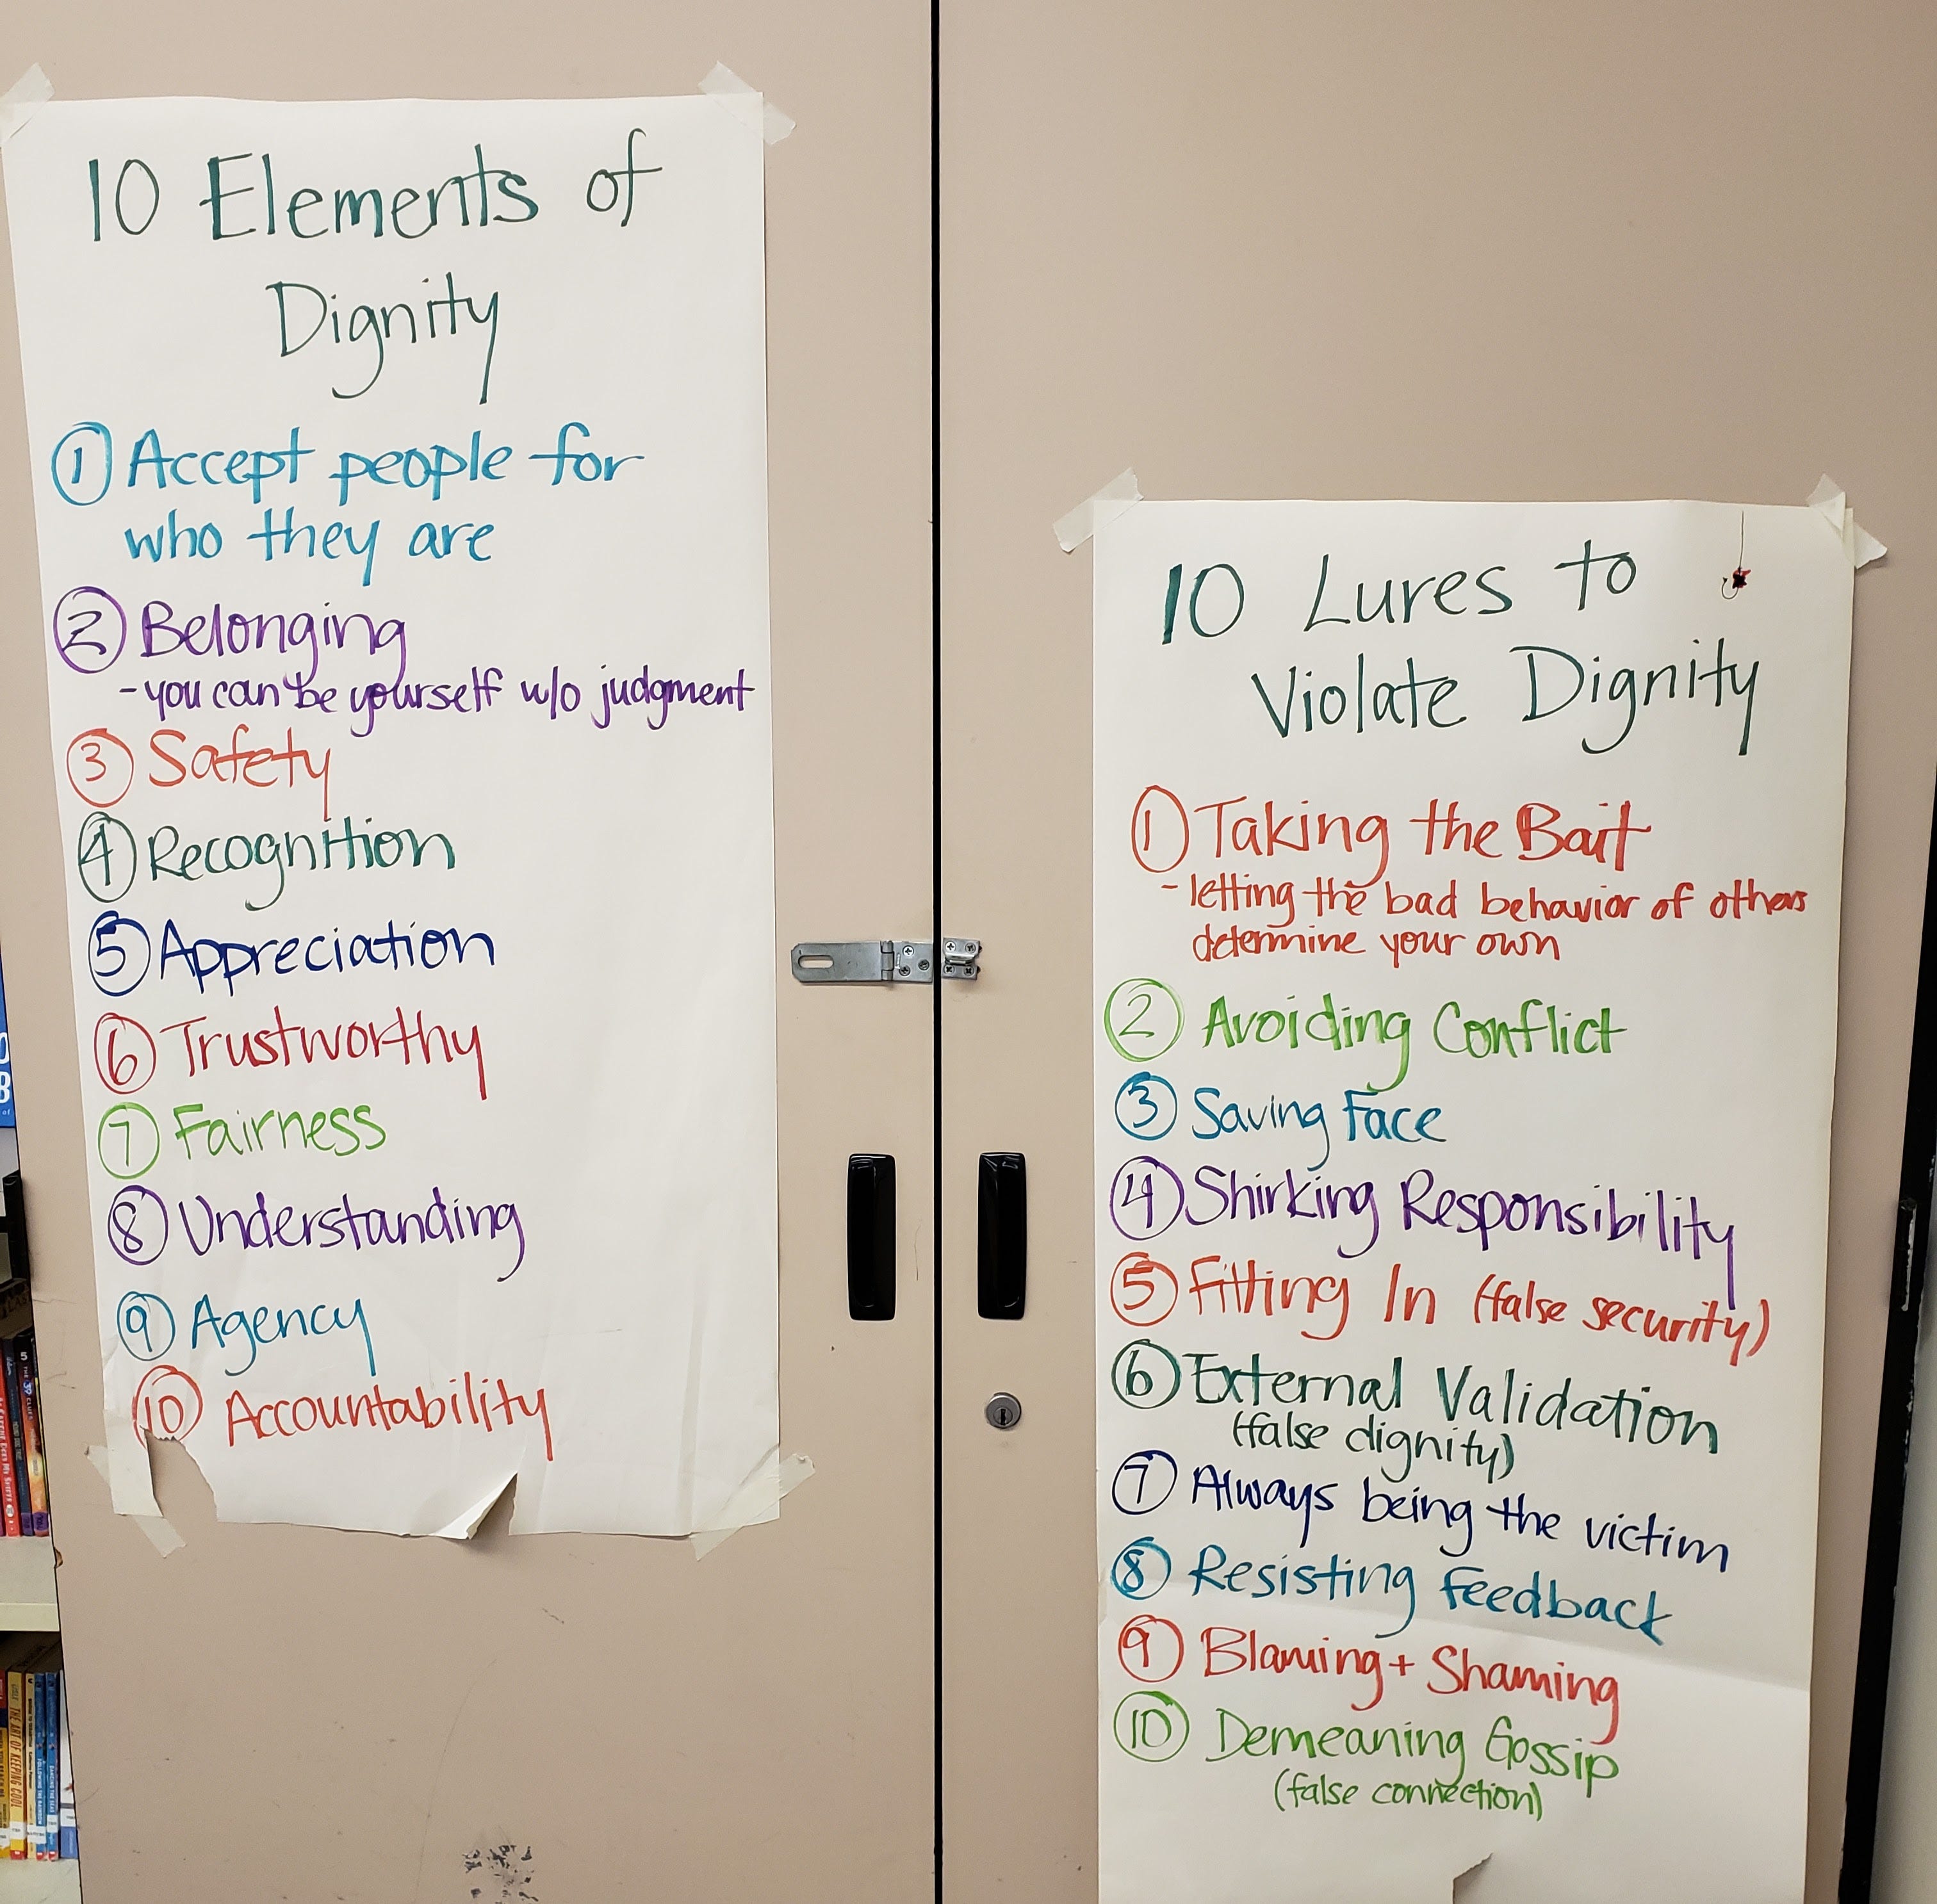 10 Elements of
Dignity
1 Accept people for
who they are
2 Belonging
- you can be yourself w/o judgment
3 Safety
4 Recognition
5 Appreciation
6 Trustworthy
7 Fairness
8 Understanding
9 Agency
10 Accountability
10 Lures to
Violate Dignity
1 Taking the Bait
- letting the bad behavior of others
determine your own
2 Avoiding Conflict
3 Saving Face
4 Shirking Responsibility
5 Fitting In (false security)
6 External Validation
(false dignity)
7 Always being the victim
8 Resisting Feedback
9 Blaming + Shaming
10 Demeaning Gossip
(false connection)
THE ART OF KEEPING COOL